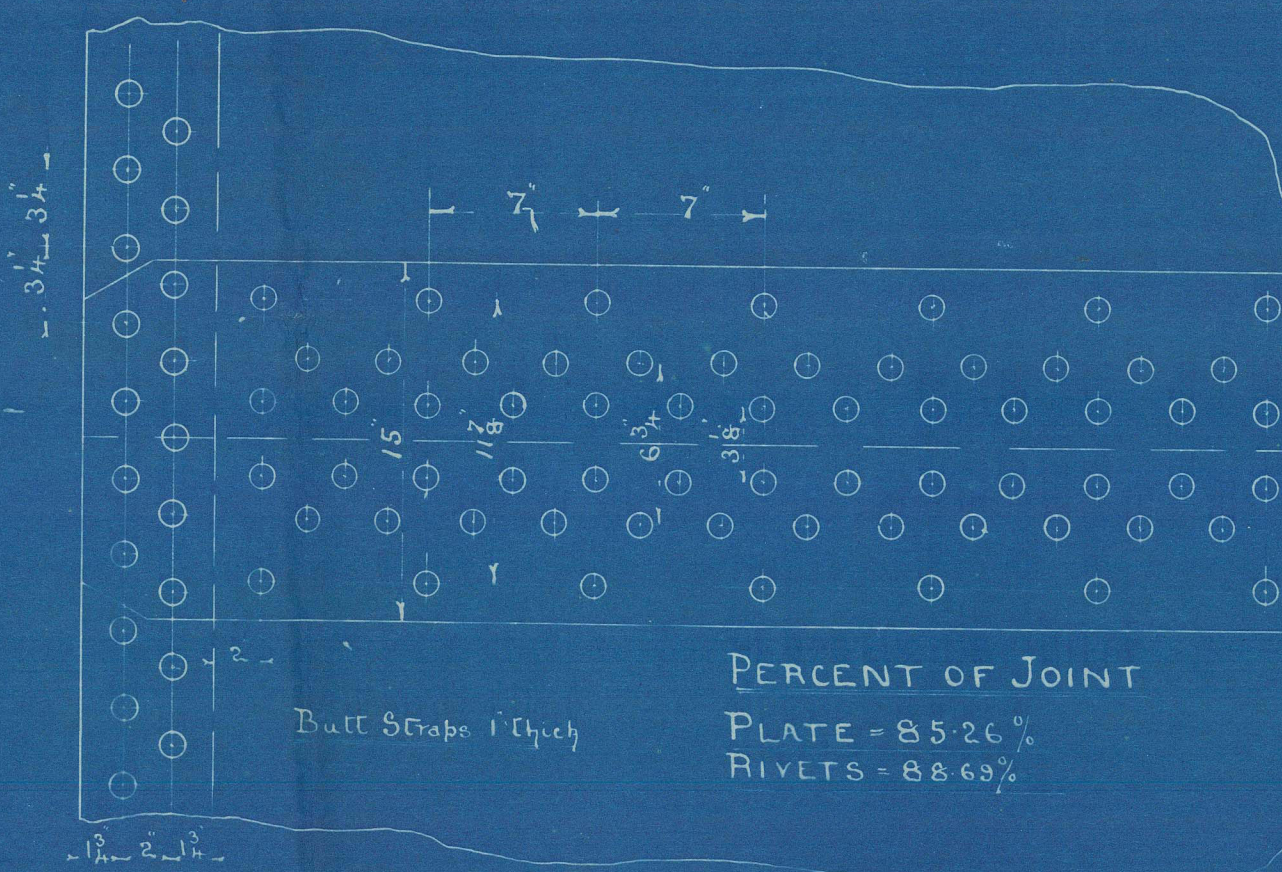 3 1/4" 3 1/4"
7" 7"
15" 11 7/8" 6 3/4" 3 1/8"
2
Butt Straps 1" Thick
PERCENT OF JOINT
PLATE = 85·26%
RIVETS = 88·69%
1 3/4" 2" 1 3/4"